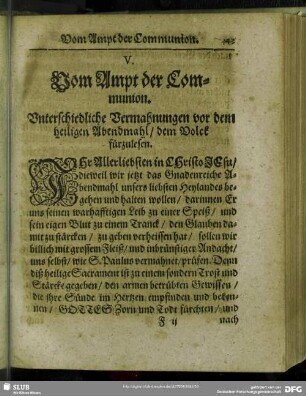 Vom Ampt der Communion.
V.
Vom Ampt der Com-
munion.
Vnterschiedliche Vermahnungen vor dem
heiligen Abendmahl/ dem Volck
fürzulesen.
IHr Allerliebsten in CHristo JEsu/
dieweil wir jetzt das Gnadenreiche A-
bendmahl unsers liebsten Heylandes be-
gehen und halten wollen/ darinnen Er
uns seinen warhafftigen Leib zu einer Speiß/ und
sein eigen Blut zu einem Tranck/ den Glauben da-
mit zu stärcken/ zu geben verheissen hat/ sollen wir
billich mit grossem Fleiß/ und inbrünstiger Andacht/
uns selbst/ wie S. Paulus vermahnet/ prüfen. Denn
diß heilige Sacrament ist zu einem sondern Trost und
Stärcke gegeben/ den armen betrübten Gewissen/
die ihre Sünde im Hertzen empfinden und beken-
nen/ GOTTES Zorn und Tode fürchten/ und
F ij nach
SLUB
DFG